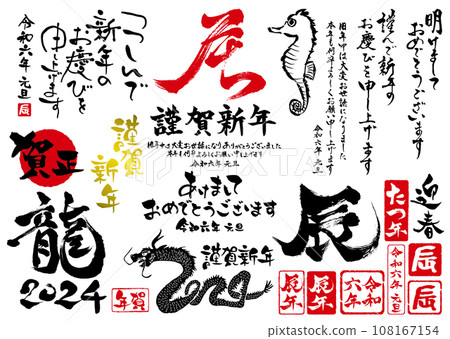 明けまして
おめでとうございます
謹んで新年の
お慶びを申し上げます
旧年中は大変お世話になりました
本年も何卒よろしくお願い申し上げます
令和六年 元旦
辰
つつしんで
新年の
お慶びを
申し上げます
令和六年 元旦
辰
謹賀新年
旧年中は大変お世話になりありがとうございました
本年も何卒よろしくお願い申し上げます
令和六年 元旦
謹賀
新年
賀正
龍
2024
年賀
あけまして
おめでとうございます
令和六年 元旦
謹賀新年
2024
辰
迎春
たつ年
令和六年 元旦
辰
辰
辰年
辰年
令和
六年
108167154